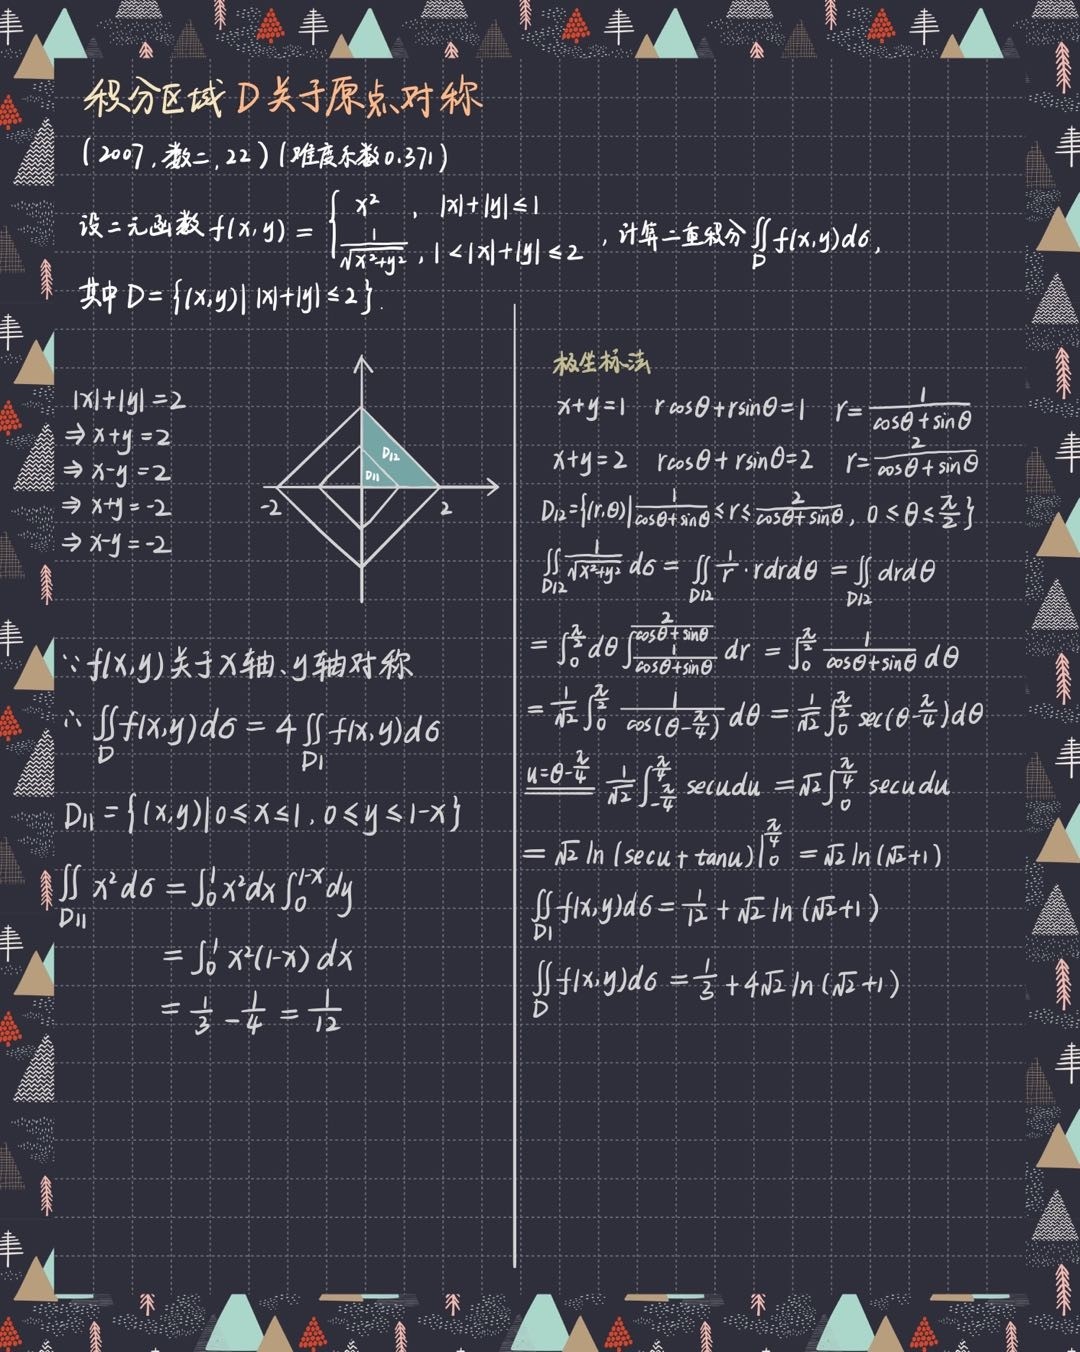 积分区域 D 关于原点对称
(2007, 数二, 22) (难度系数 0.371)
设二元函数 f(x, y) = { x² , |x|+|y| ≤ 1
1/√(x²+y²) , 1 < |x|+|y| ≤ 2 , 计算二重积分 ∬_D f(x,y)dσ,
其中 D = {(x,y)| |x|+|y| ≤ 2}.
|x|+|y| = 2
⇒ x+y = 2
⇒ x-y = 2
⇒ x+y = -2
⇒ x-y = -2
D12
D11
-2
2
∵ f(x,y) 关于 x 轴、y 轴对称
∴ ∬_D f(x,y)dσ = 4 ∬_D1 f(x,y)dσ
D11 = {(x,y)| 0 ≤ x ≤ 1, 0 ≤ y ≤ 1-x}
∬_D11 x²dσ = ∫₀¹ x²dx ∫₀^(1-x) dy
= ∫₀¹ x²(1-x) dx
= 1/3 - 1/4 = 1/12
极坐标法
x+y=1 rcosθ+rsinθ=1 r= 1/(cosθ+sinθ)
x+y=2 rcosθ+rsinθ=2 r= 2/(cosθ+sinθ)
D12={(r,θ)| 1/(cosθ+sinθ) ≤ r ≤ 2/(cosθ+sinθ), 0 ≤ θ ≤ π/2}
∬_D12 1/√(x²+y²) dσ = ∬_D12 1/r · rdrdθ = ∬_D12 drdθ
= ∫₀^(π/2) dθ ∫_(1/(cosθ+sinθ))^(2/(cosθ+sinθ)) dr = ∫₀^(π/2) 1/(cosθ+sinθ) dθ
= 1/√2 ∫₀^(π/2) 1/cos(θ-π/4) dθ = 1/√2 ∫₀^(π/2) sec(θ-π/4)dθ
u=θ-π/4 1/√2 ∫_(-π/4)^(π/4) secudu = √2 ∫₀^(π/4) secudu
= √2 ln (secu+tanu)|₀^(π/4) = √2 ln(√2+1)
∬_D1 f(x,y)dσ = 1/12 + √2 ln (√2+1)
∬_D f(x,y)dσ = 1/3 + 4√2 ln (√2+1)